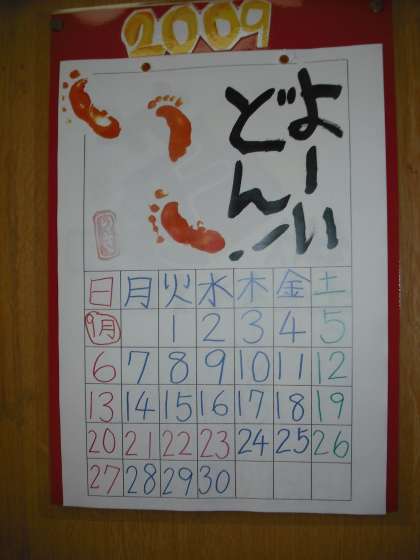 2009
よーい
どん!!
日 月 火 水 木 金 土
9月 1 2 3 4 5
6 7 8 9 10 11 12
13 14 15 16 17 18 19
20 21 22 23 24 25 26
27 28 29 30